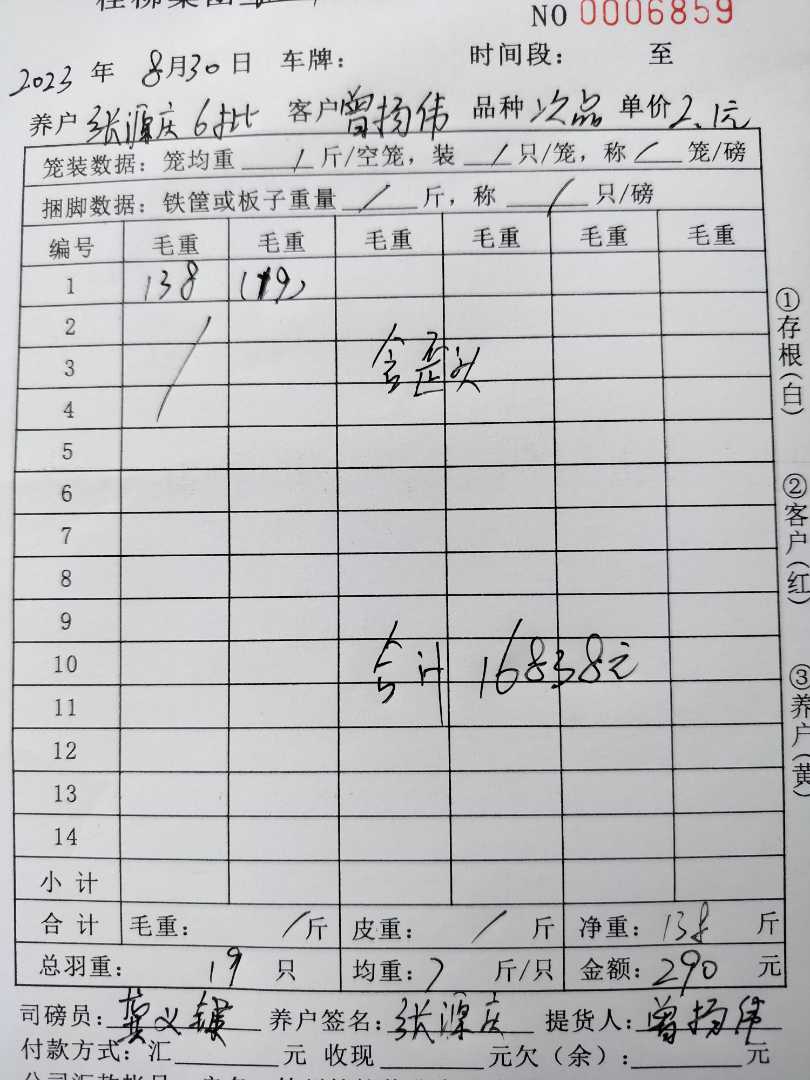 NO 0006859
2023 年 8月30日 车牌： 时间段： 至
养户 张源庆 6批 客户 曾扬伟 品种 次品 单价 2.1元
笼装数据：笼均重 / 斤/空笼，装 / 只/笼，称 / 笼/磅
捆脚数据：铁筐或板子重量 / 斤，称 / 只/磅
编号 毛重 毛重 毛重 毛重 毛重 毛重
1 138 (19)
2 /
3 含歪头
4
5
6
7
8
9
10 合计 16838元
11
12
13
14
小 计
合 计 毛重： / 斤 皮重： / 斤 净重： 138 斤
总羽重： 19 只 均重： 7 斤/只 金额： 290 元
司磅员： 养户签名： 张源庆 提货人： 曾扬伟
付款方式：汇 元 收现 元欠（余）： 元
①存根（白）
②客户（红）
③养户（黄）